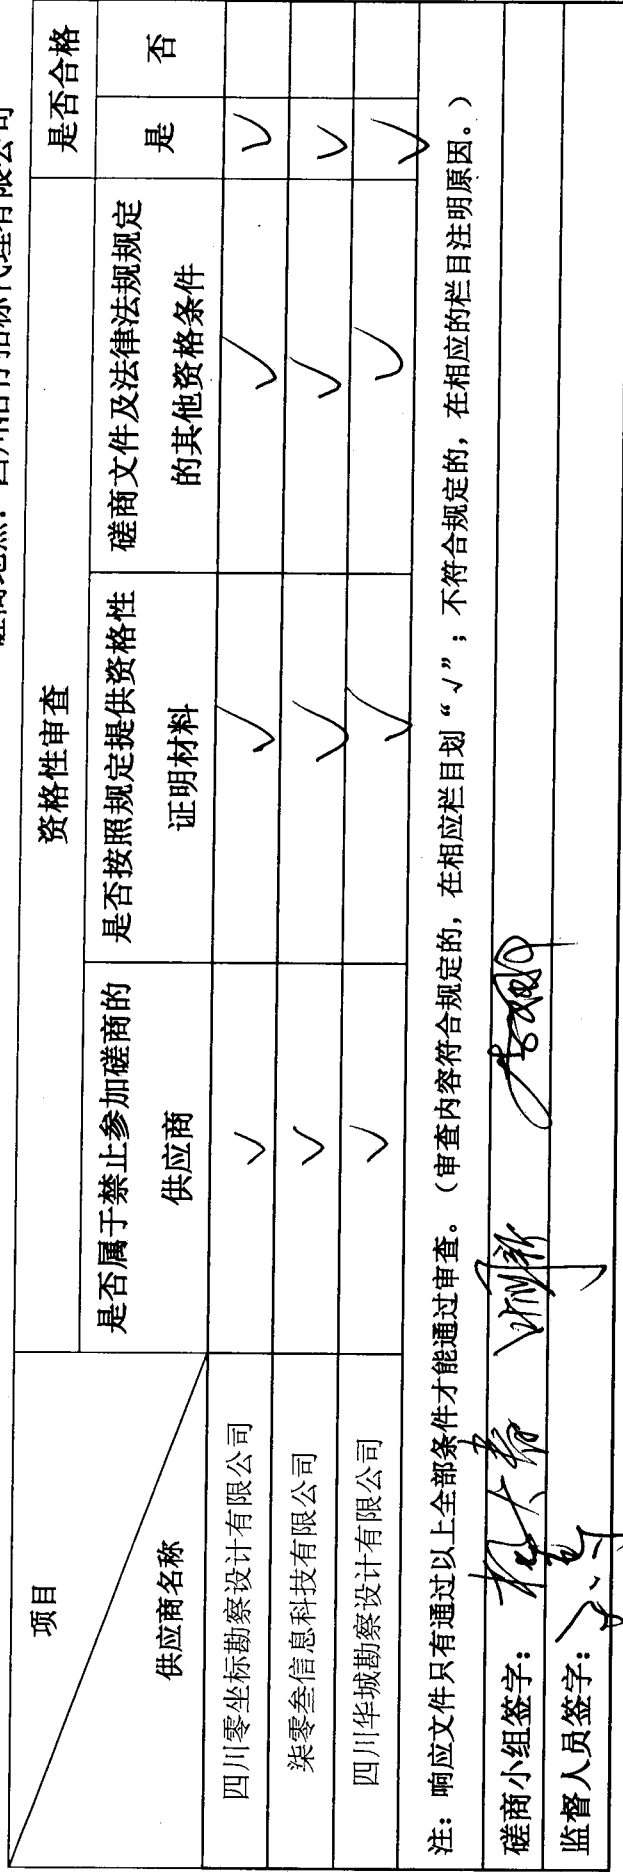 项目
资格性审查
是否合格
供应商名称
是否属于禁止参加磋商的
供应商
是否按照规定提供资格性
证明材料
磋商文件及法律法规规定
的其他资格条件
是
否
四川零坐标勘察设计有限公司 √ √ √ √
柒零叁信息科技有限公司 √ √ √ √
四川华城勘察设计有限公司 √ √ √ √
注：响应文件只有通过以上全部条件才能通过审查。（审查内容符合规定的，在相应栏目划“√”；不符合规定的，在相应的栏目注明原因。）
磋商小组签字：
监督人员签字：